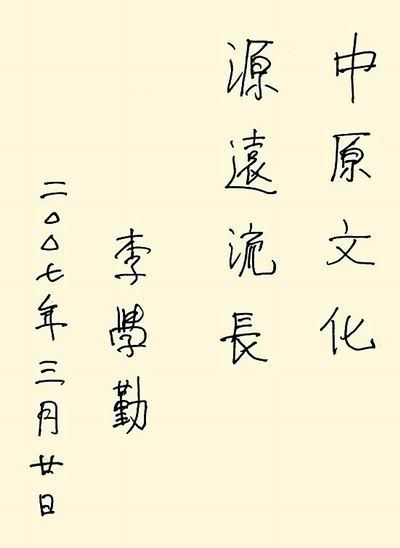 中原文化
源遠流長
李學勤
二〇〇七年三月廿日